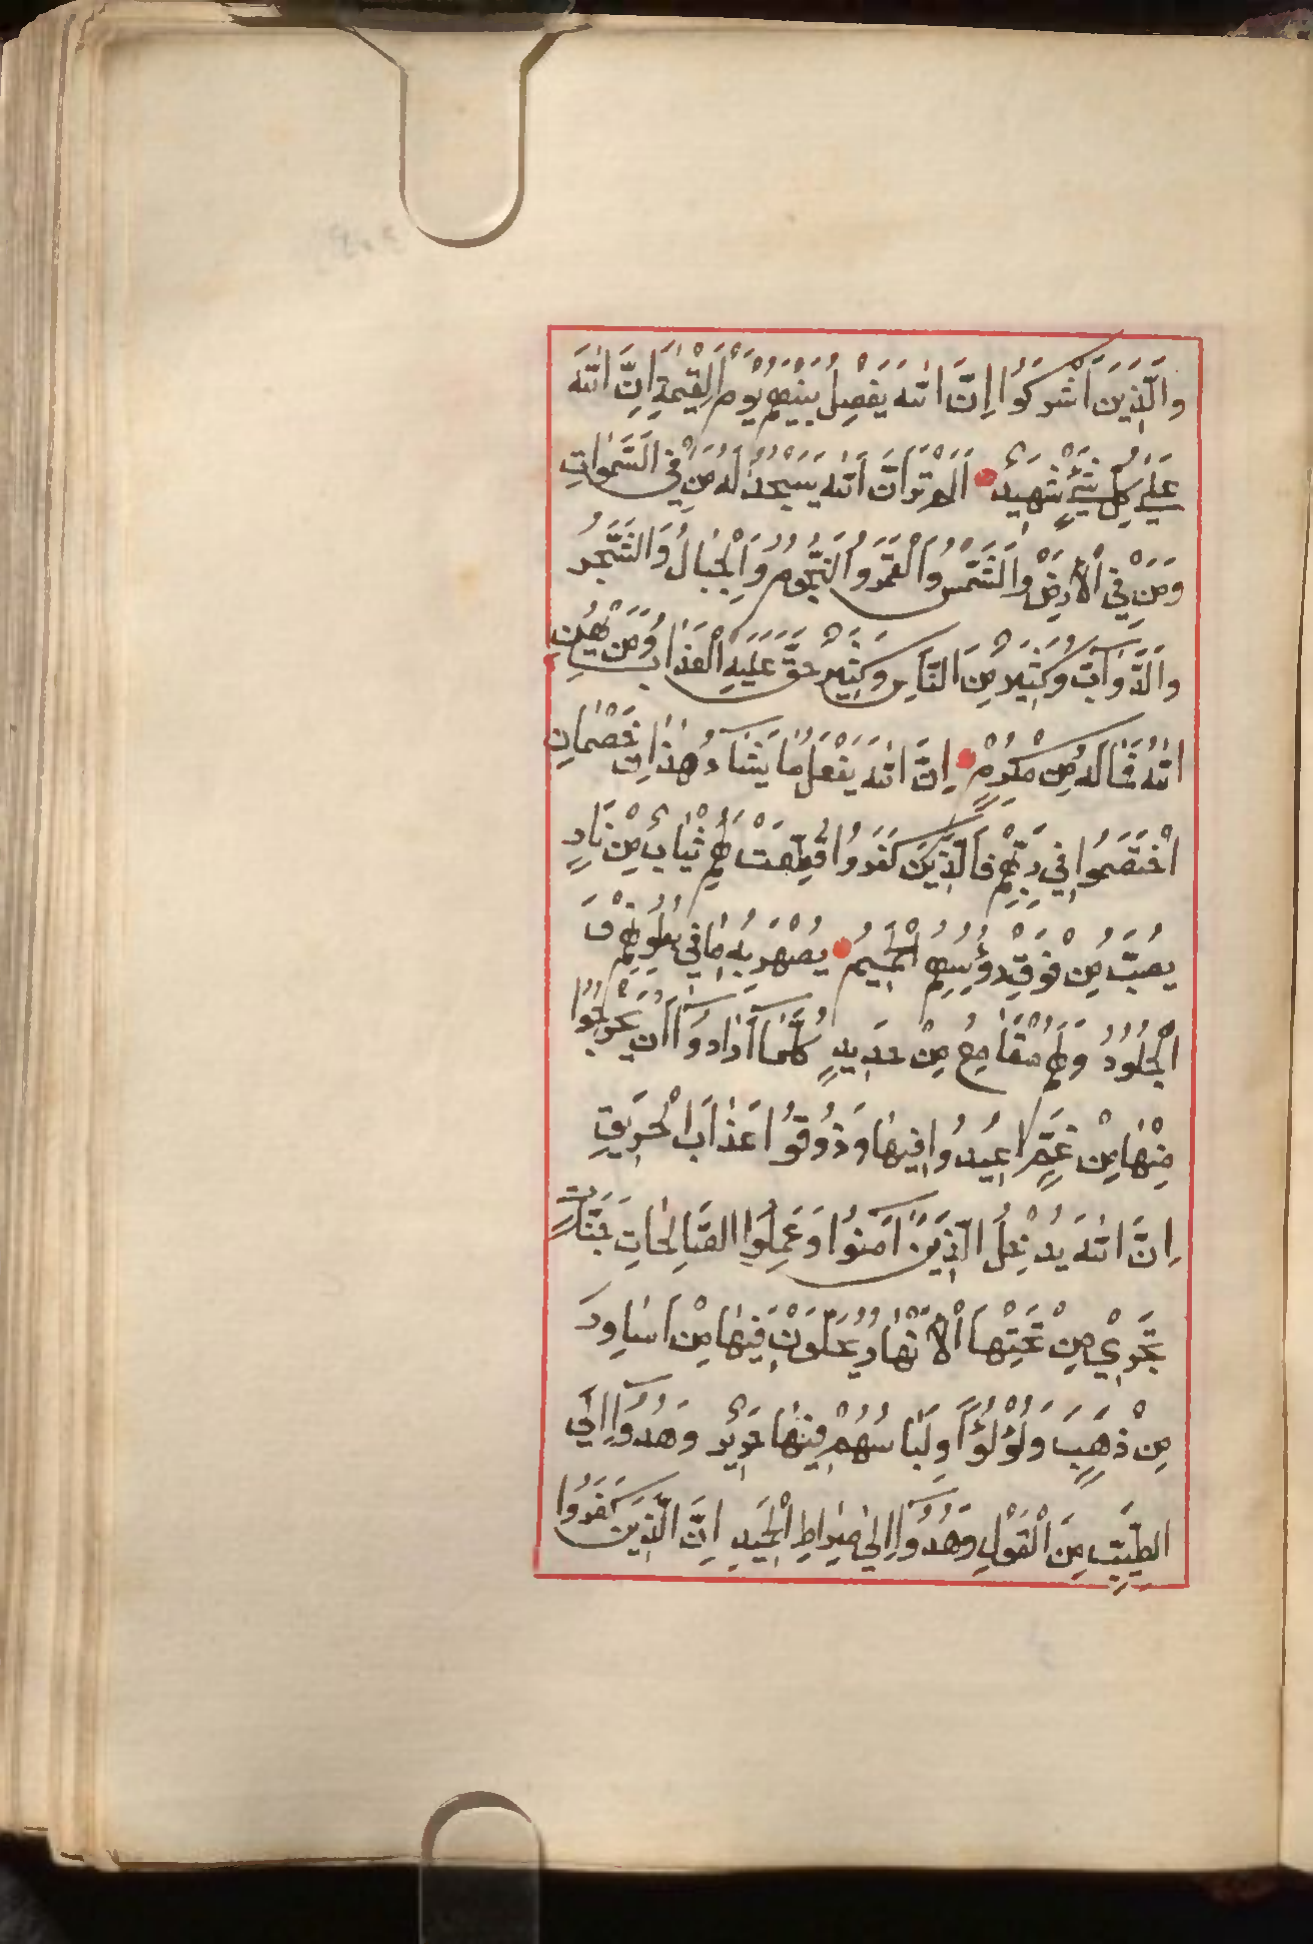 وَالَّذِينَ اَشْرَكُوا اِنَّ اللّٰهَ يَفْصِلُ بَيْنَهُمْ يَوْمَ الْقِيٰمَةِ اِنَّ اللّٰهَ
عَلٰي كُلِّ شَيْءٍ شَهِيدٌ اَلَمْ تَرَ اَنَّ اللّٰهَ يَسْجُدُ لَهُ مَنْ فِي السَّمٰوٰاتِ
وَمَنْ فِي الْاَرْضِ وَالشَّمْسُ وَالْقَمَرُ وَالنُّجُومُ وَالْجِبٰالُ وَالشَّجَرُ
وَالدَّوَآبُّ وَكَثِيرٌ مِنَ النَّاسِ وَكَثِيرٌ حَقَّ عَلَيْهِ الْعَذٰابُ وَمَنْ يُهِنِ
اللّٰهُ فَمٰا لَهُ مِنْ مُكْرِمٍ اِنَّ اللّٰهَ يَفْعَلُ مٰا يَشَآءُ هٰذٰانِ خَصْمٰانِ
اخْتَصَمُوا فِي رَبِّهِمْ فَالَّذِينَ كَفَرُوا قُطِّعَتْ لَهُمْ ثِيٰابٌ مِنْ نَارٍ
يُصَبُّ مِنْ فَوْقِ رُؤُسِهِمُ الْحَمِيمُ يُصْهَرُ بِهِ مٰا فِي بُطُونِهِمْ وَ
الْجُلُودُ وَلَهُمْ مَقٰامِعُ مِنْ حَدِيدٍ كُلَّمٰا اَرٰادُوآ اَنْ يَخْرُجُوا
مِنْهٰا مِنْ غَمٍّ اُعِيدُوا فِيهٰا وَذُوقُوا عَذٰابَ الْحَرِيقِ
اِنَّ اللّٰهَ يُدْخِلُ الَّذِينَ آمَنُوا وَعَمِلُوا الصَّالِحٰاتِ جَنَّاتٍ
تَجْرِي مِنْ تَحْتِهَا الْاَنْهٰارُ يُحَلَّوْنَ فِيهٰا مِنْ اَسٰاوِرَ
مِنْ ذَهَبٍ وَلُؤْلُؤًا وَلِبٰاسُهُمْ فِيهٰا حَرِيرٌ وَهُدُوآ اِلَي
الطَّيِّبِ مِنَ الْقَوْلِ وَهُدُوآ اِلٰي صِرٰاطِ الْحَمِيدِ اِنَّ الَّذِينَ كَفَرُوا